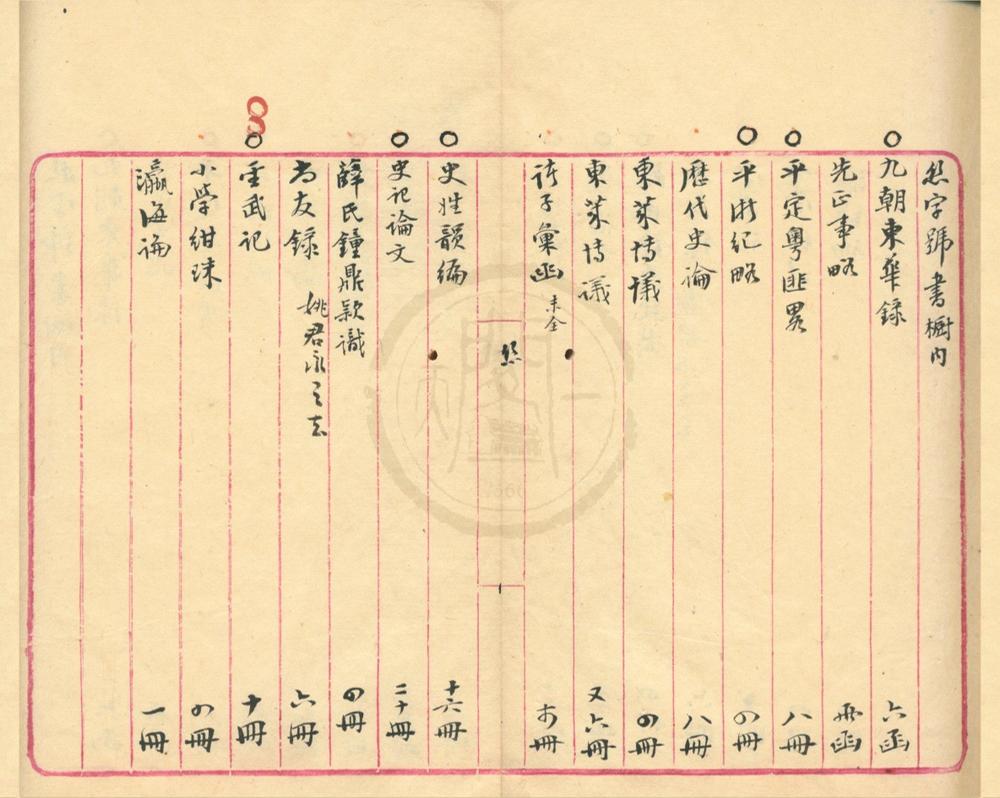 字號書橱内
九朝東華錄 六函
先正事略 兩函
平定粤匪畧 八冊
平浙紀略 四冊
歷代史論 八冊
東萊博議 四冊
東萊博議 又六冊
諸子彙函 未全 冊
史姓韻編 十六冊
史記論文 二十冊
薛氏鐘鼎款識 四冊
尚友錄 姚君 去 六冊
聖武記 十冊
小學紺珠 四冊
瀛海論 一冊